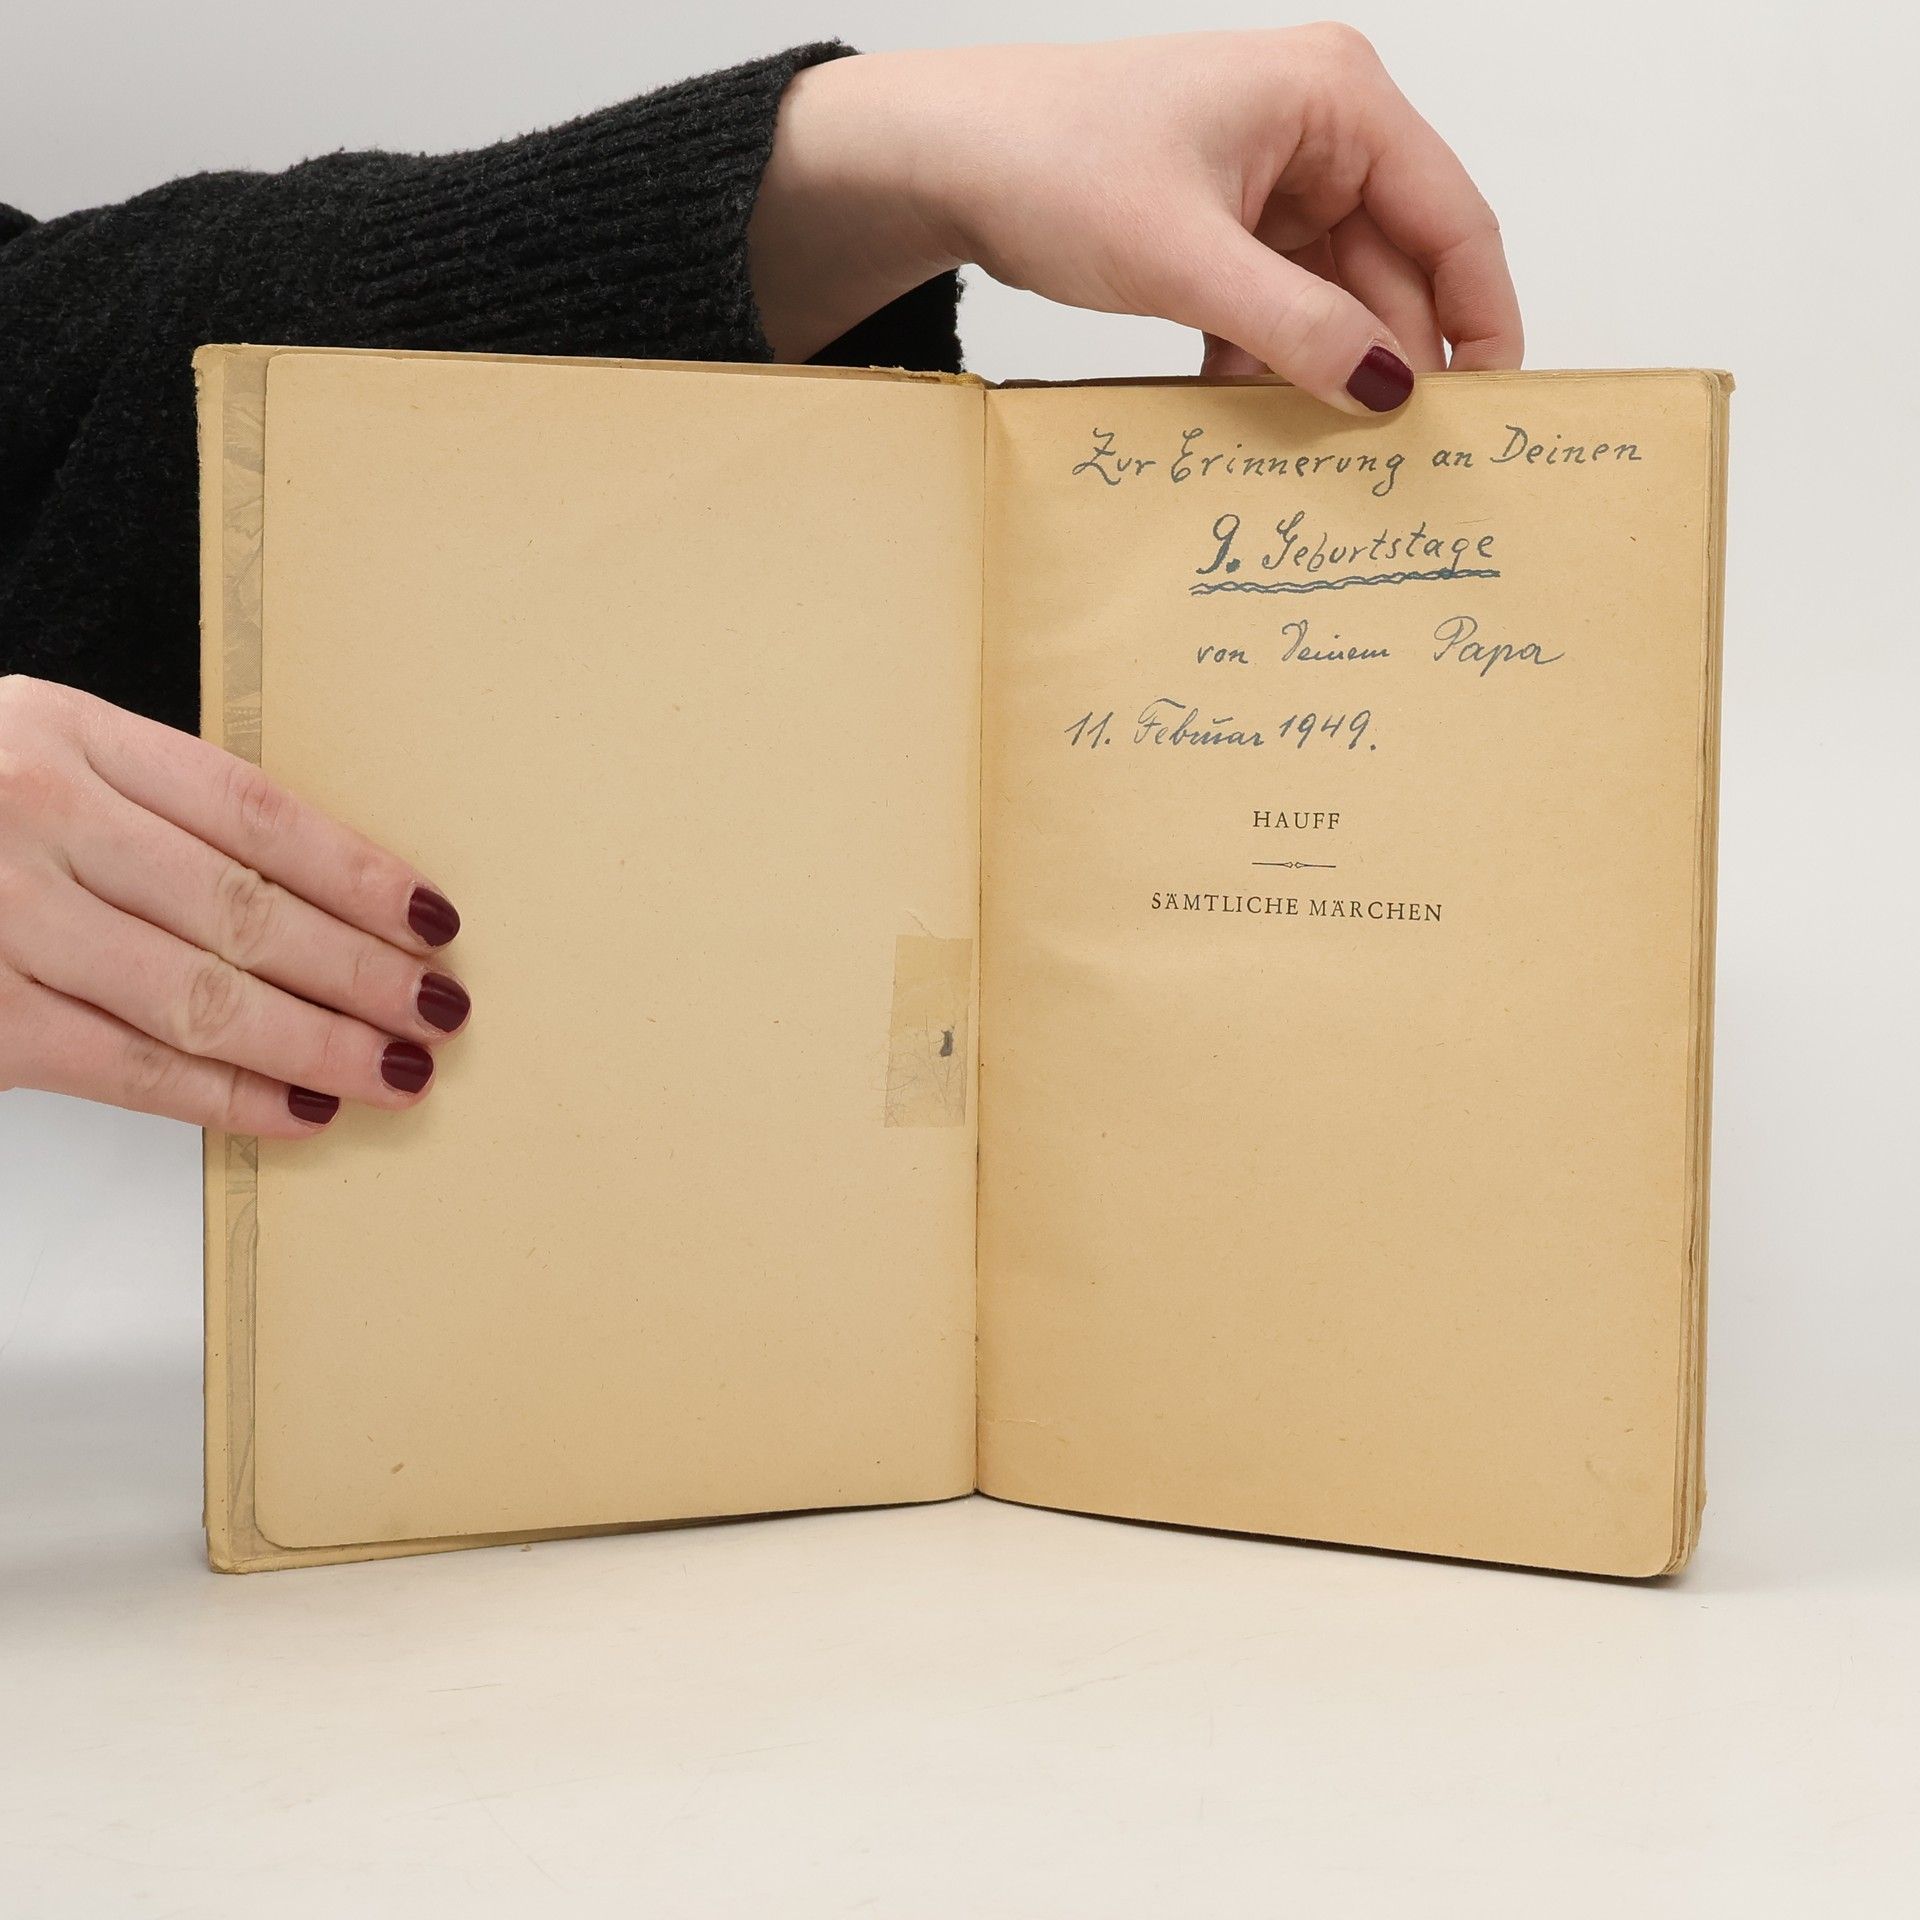 Zur Erinnerung an Deinen
9. Geburtstage
von Deinem Papa
11. Februar 1949.
HAUFF
SÄMTLICHE MÄRCHEN